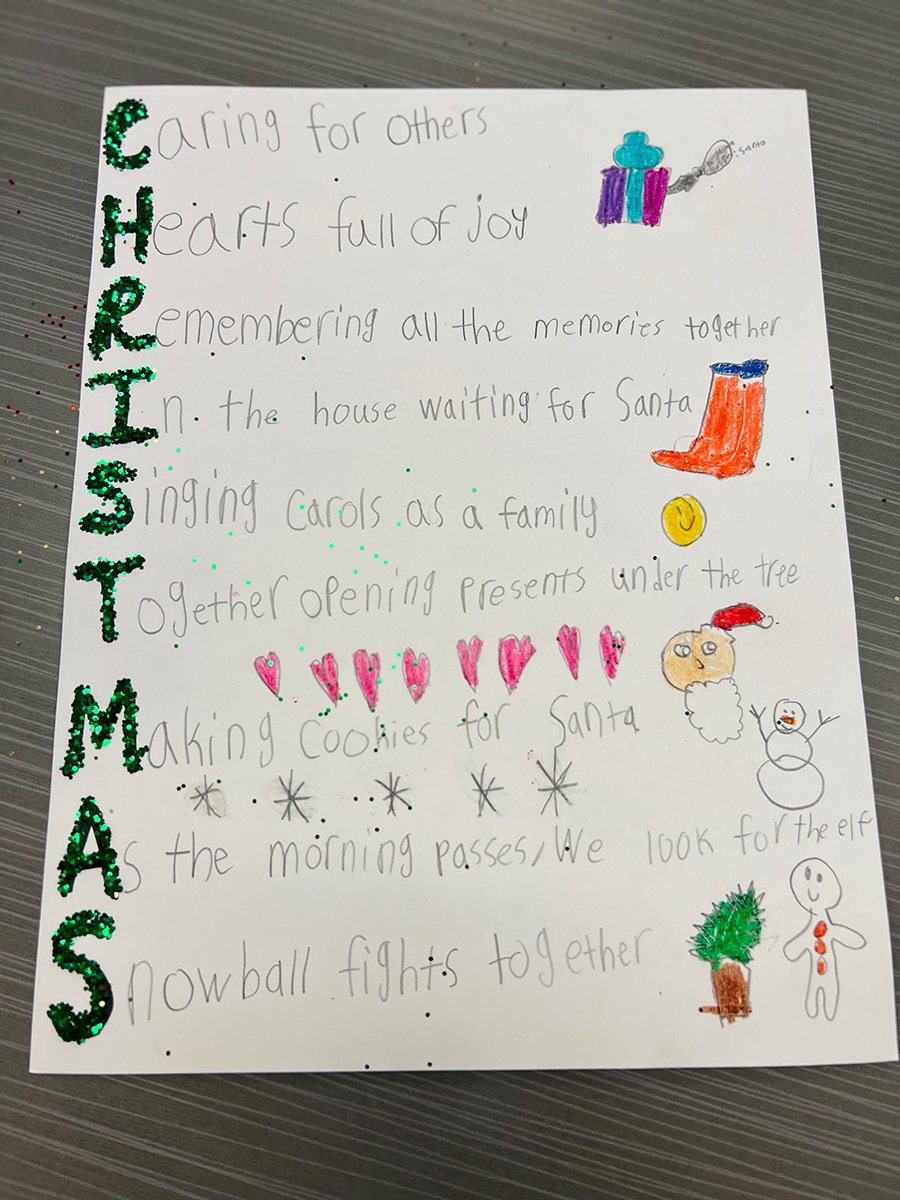 Caring for others
: santo
Hearts full of joy
Remembering all the memories together
In the house waiting for Santa
Singing Carols as a family
Together opening presents under the tree
Making Cookies for Santa
As the morning passes, We look for the elf
Snowball fights together